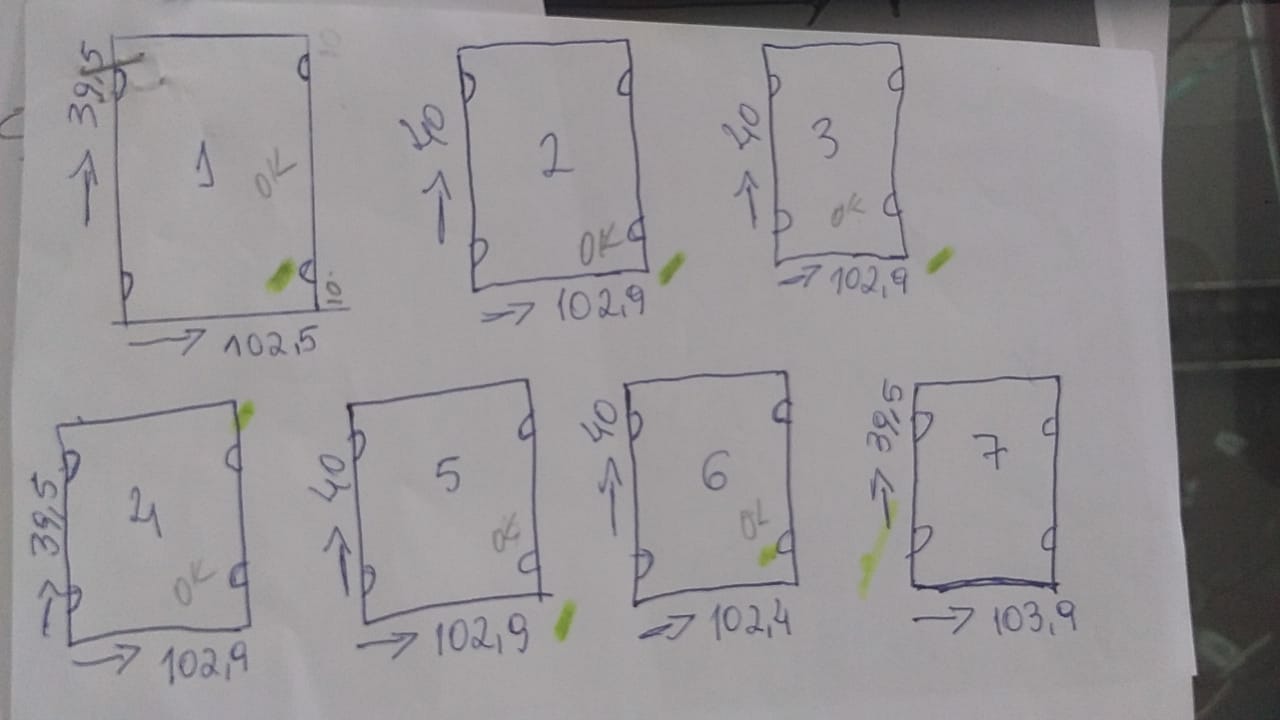 39,5
10
1
OK
10
→ 102,5
40
2
OK
→ 102,9
40
3
OK
→ 102,9
39,5
4
OK
→ 102,9
40
5
OK
→ 102,9
40
6
OK
→ 102,4
39,5
7
→ 103,9